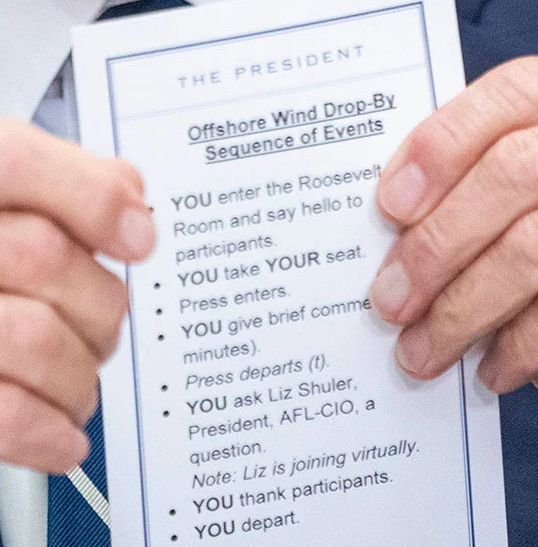 THE PRESIDENT
Offshore Wind Drop-By
Sequence of Events
• YOU enter the Roosevelt
Room and say hello to
participants.
• YOU take YOUR seat.
• Press enters.
• YOU give brief comme
minutes).
• Press departs (t).
• YOU ask Liz Shuler,
President, AFL-CIO, a
question.
Note: Liz is joining virtually.
• YOU thank participants.
• YOU depart.